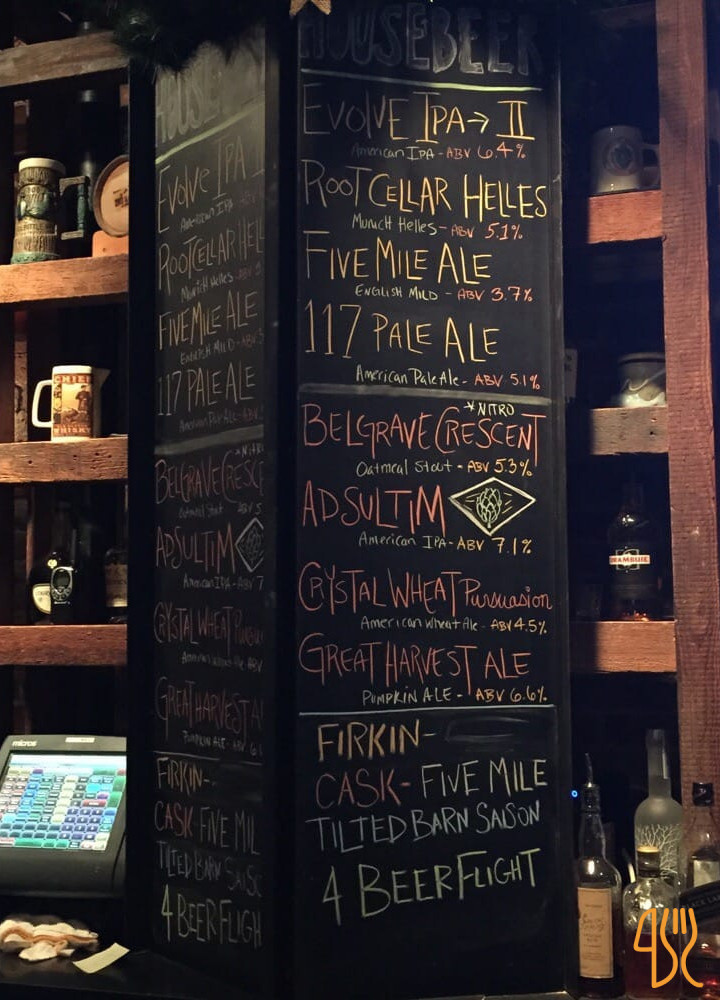 HOUSEBEER
EVOLVE IPA→ II
American IPA - ABV 6.4%
ROOT CELLAR HELLES
Munich Helles - ABV 5.1%
FIVE MILE ALE
ENGLISH MILD - ABV 3.7%
117 PALE ALE
American Pale Ale - ABV 5.1%
*NITRO
BELGRAVE CRESCENT
Oatmeal Stout - ABV 5.3%
ADSULTIM
American IPA - ABV 7.1%
CRYSTAL WHEAT Pursuasion
American Wheat Ale - ABV 4.5%
GREAT HARVEST ALE
PUMPKIN ALE - ABV 6.6%
FIRKIN-
CASK- FIVE MILE
TILTED BARN SAISON
4 BEER FLIGHT
HOUSE
EVOLVE IPA I
American IPA
ROOT CELLAR HELL
Munich Helles - ABV
FIVE MILE ALE
ENGLISH MILD - ABV 3
117 PALE ALE
American Pale Ale - ABV
*NITR
BELGRAVE CRESCE
Oatmeal Stout
ADSULTIM
American IPA - ABV 7
CRYSTAL WHEAT
American Wheat Ale ABV
GREAT HARVEST A
PUMPKIN ALE - ABV 6
FIRKIN-
CASK FIVE MIL
TILTED BARN SAISO
4 BEER FLIGH
CHIEF
WHISKY
micros
DRAMBUIE